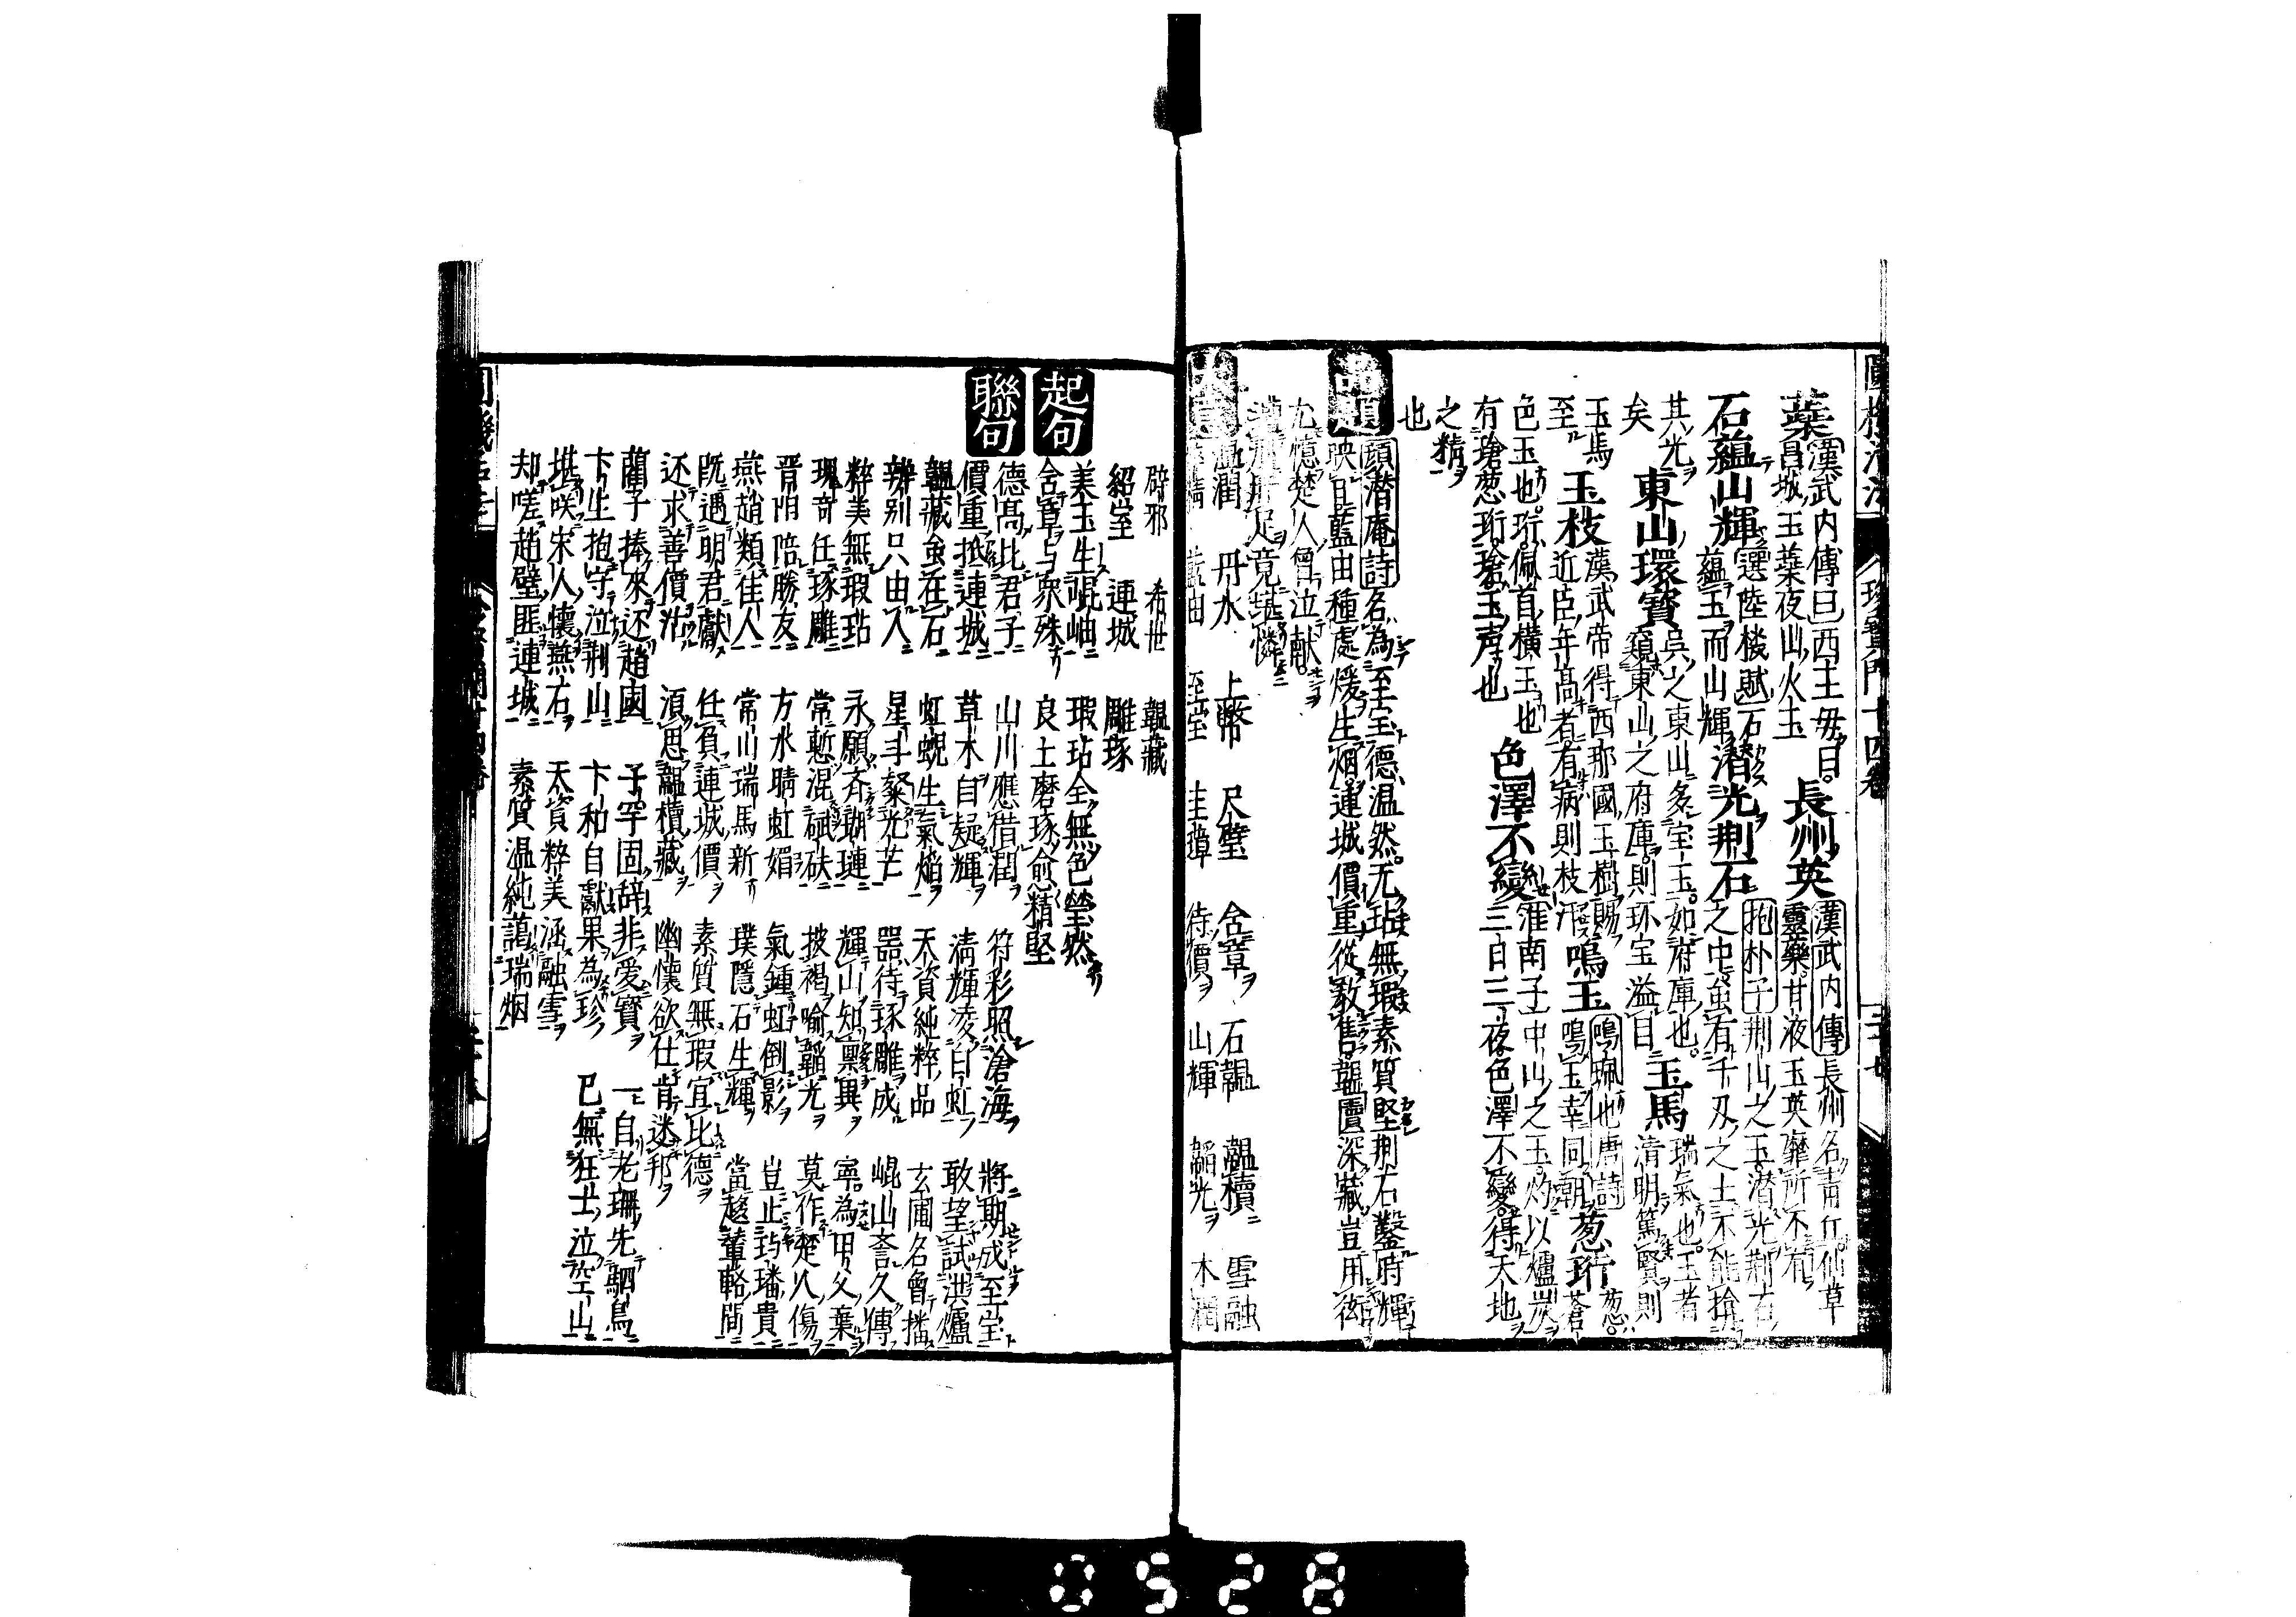 葉漢武内傳曰西王母曰
昌城玉葉夜山火玉
長州英漢武内傳長州名青丘仙草
靈藥甘液玉英靡所不有
石蘊山輝選陸機賦石
蘊玉而山輝
潜光荆石抱朴子荆山之玉潜光荆石
之中虽有千刄之土不能掩
其光
矣
東山環寳吳之東山多宝玉如府庫也
窺東山之府庫則环宝溢目
玉馬瑞氣也玉者
清明篤賢則
玉馬
至
玉枝漢武帝得西那國玉樹賜
近臣年髙者有病則枝
鳴玉鳴珮也唐詩
鳴玉幸同朝
葱珩葱蒼
色玉也珩佩首橫玉也
有瑲葱珩瑲玉声也
色澤不變淮南子中山之玉灼以爐炭
三日三夜色澤不變得天地
之精
也
品題
顧潜庵詩名為至宝德温然无玷無瑕素質堅荆石鑿时輝
映日藍田種處煖生烟連城價重從教售韞匱深藏豈用衒
尤憶楚人曾泣献
足竟堪憐
温潤 丹水 上幣 尺璧 含章 石韞 韞櫝 雪融
藍田 至宝 圭璋 待價 山輝 韜光 木潤
辟邪 希世 韞藏
紹宝 連城 雕琢
起句
美玉生崐岫 瑕玷全無色瑩然
含章与衆殊 良土磨琢愈精堅
聯句
德髙比君子 山川應借潤 符彩照滄海 將期成至宝
價重抵連城 草木自疑輝 淸輝凌白虹 敢望試洪爐
韞藏虽在石 虹蜺生氣焰 天資純粹品 玄圃名曾播
辨别只由人 星斗粲光芒 器待琢雕成 崐山誉久傳
粹美無瑕玷 永願斉瑚璉 輝山知禀異 寧為甲乂葉
瑰奇任琢雕 常慙混碔砆 披褐喻韜光 莫作楚人傷
晋阳陪勝友 方水晴虹媚 氣鍾虹倒影 豈止玙璠貴
燕趙類佳人 常山瑞馬新 璞隱石生輝 當趍輦輅間
既遇明君獻 任負連城價 素質無瑕宜比德
还求善價沽 湏思韞櫝藏 幽懷欲仕肯迷邦
藺子捧來还趙國 子罕固辞非愛寳 一自老珊先駟馬
卞生抱守泣荆山 卞和自獻果為珍 已無狂士泣空山
堪咲宋人懷燕石 天資粹美涵融雪
却嗟趙璧匪連城 素質温純藹瑞烟
0528